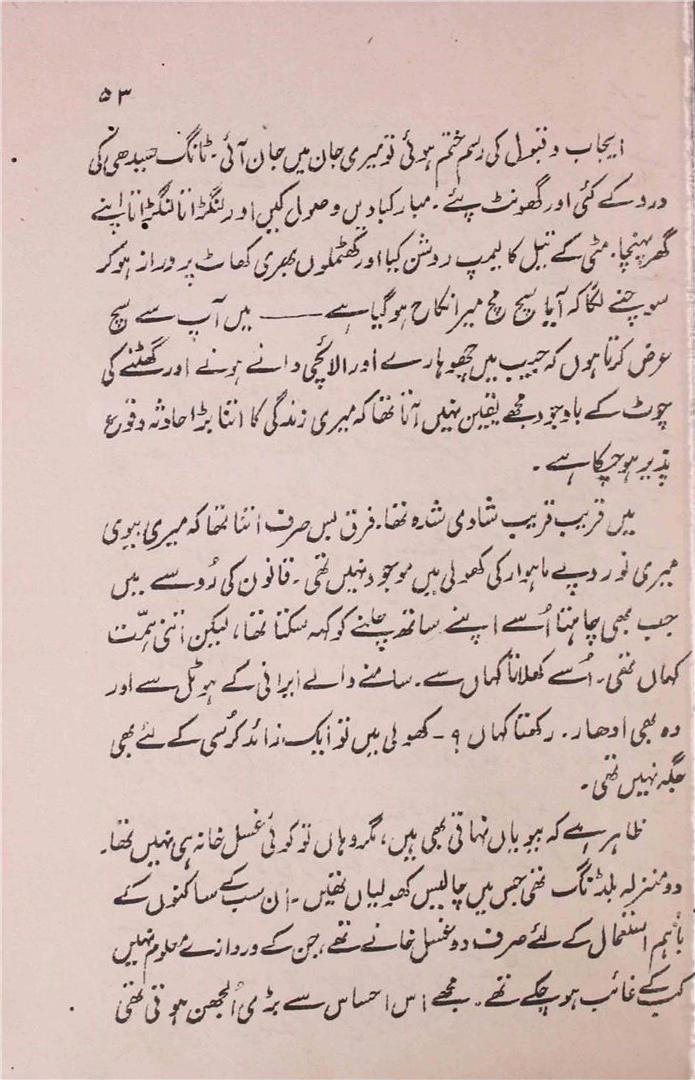 ۵۳
ایجاب و قبول کی رسم ختم ہوئی تو میری جان میں جان آئی۔ ٹانگ سیدھی کی
درد کے کئی اور گھونٹ پئے۔ مبارکبادیں وصول کیں اور لنگڑاتا لنگڑاتا اپنے
گھر پہنچا۔ مٹی کے تیل کا لیمپ روشن کیا اور کھٹملوں بھری کھاٹ پر دراز ہو کر
سوچنے لگا کہ آیا سچ مچ میرا نکاح ہو گیا ہے —— میں آپ سے سچ
عرض کرتا ہوں کہ جیب میں چھوہارے اور الائچی دانے ہونے اور گھٹنے کی
چوٹ کے باوجود مجھے یقین نہیں آتا تھا کہ میری زندگی کا اتنا بڑا حادثہ وقوع
پذیر ہو چکا ہے۔
میں قریب قریب شادی شدہ تھا۔ فرق بس صرف اتنا تھا کہ میری بیوی
میری نو روپے ماہوار کی کھولی میں موجود نہیں تھی۔ قانون کی رُو سے میں
جب بھی چاہتا اُسے اپنے ساتھ چلنے کو کہہ سکتا تھا، لیکن اتنی ہمّت
کہاں تھی۔ اُسے کھلاتا کہاں سے۔ سامنے والے ایرانی کے ہوٹل سے اور
وہ بھی ادھار۔ رکھتا کہاں ؟ - کھولی میں تو ایک زائد کرُسی کے لئے بھی
جگہ نہیں تھی۔
ظاہر ہے کہ بیویاں نہاتی بھی ہیں، مگر وہاں تو کوئی غسل خانہ ہی نہیں تھا۔
دو منزلہ بلڈنگ تھی جس میں چالیس کھولیاں تھیں۔ اُن سب کے ساکنوں کے
باہم استعمال کے لئے صرف دو غسل خانے تھے، جن کے دروازے معلوم نہیں
کب کے غائب ہو چکے تھے۔ مجھے اس احساس سے بڑی اُلجھن ہوتی تھی